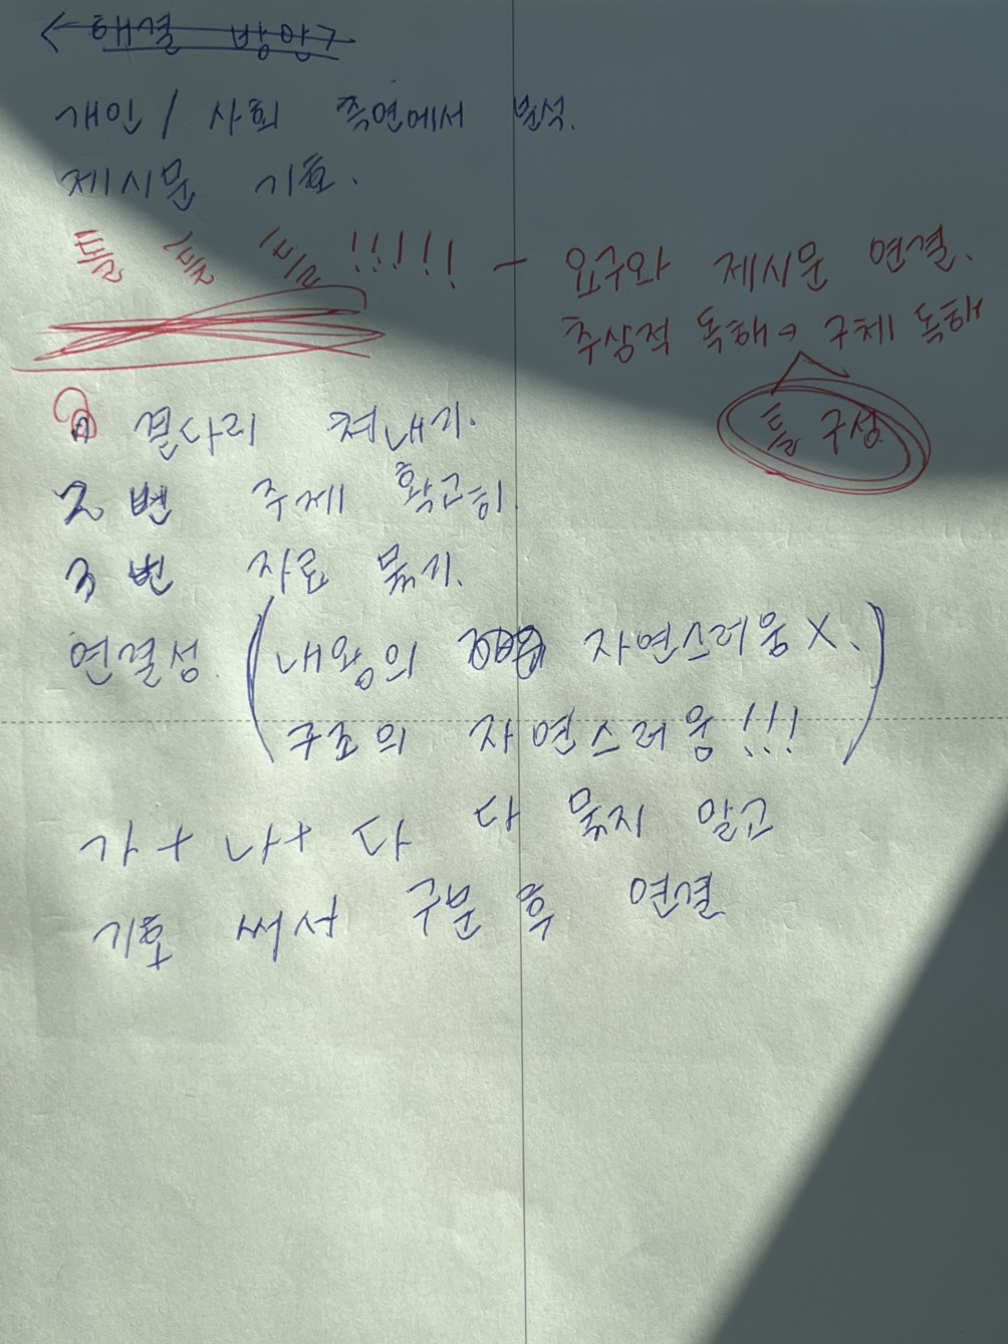 <해결 방안>
개인 / 사회 측면에서 분석.
제시문 기호.
틀 틀 틀 !!!!! - 요구와 제시문 연결.
추상적 독해 → 구체 독해
틀 구성
곁다리 쳐내기.
2번 주제 확고히.
3번 자료 묶기.
연결성. (내용의 자연스러움 X.
구조의 자연스러움!!!)
가 + 나 + 다 다 묶지 말고
기호 써서 구분 후 연결